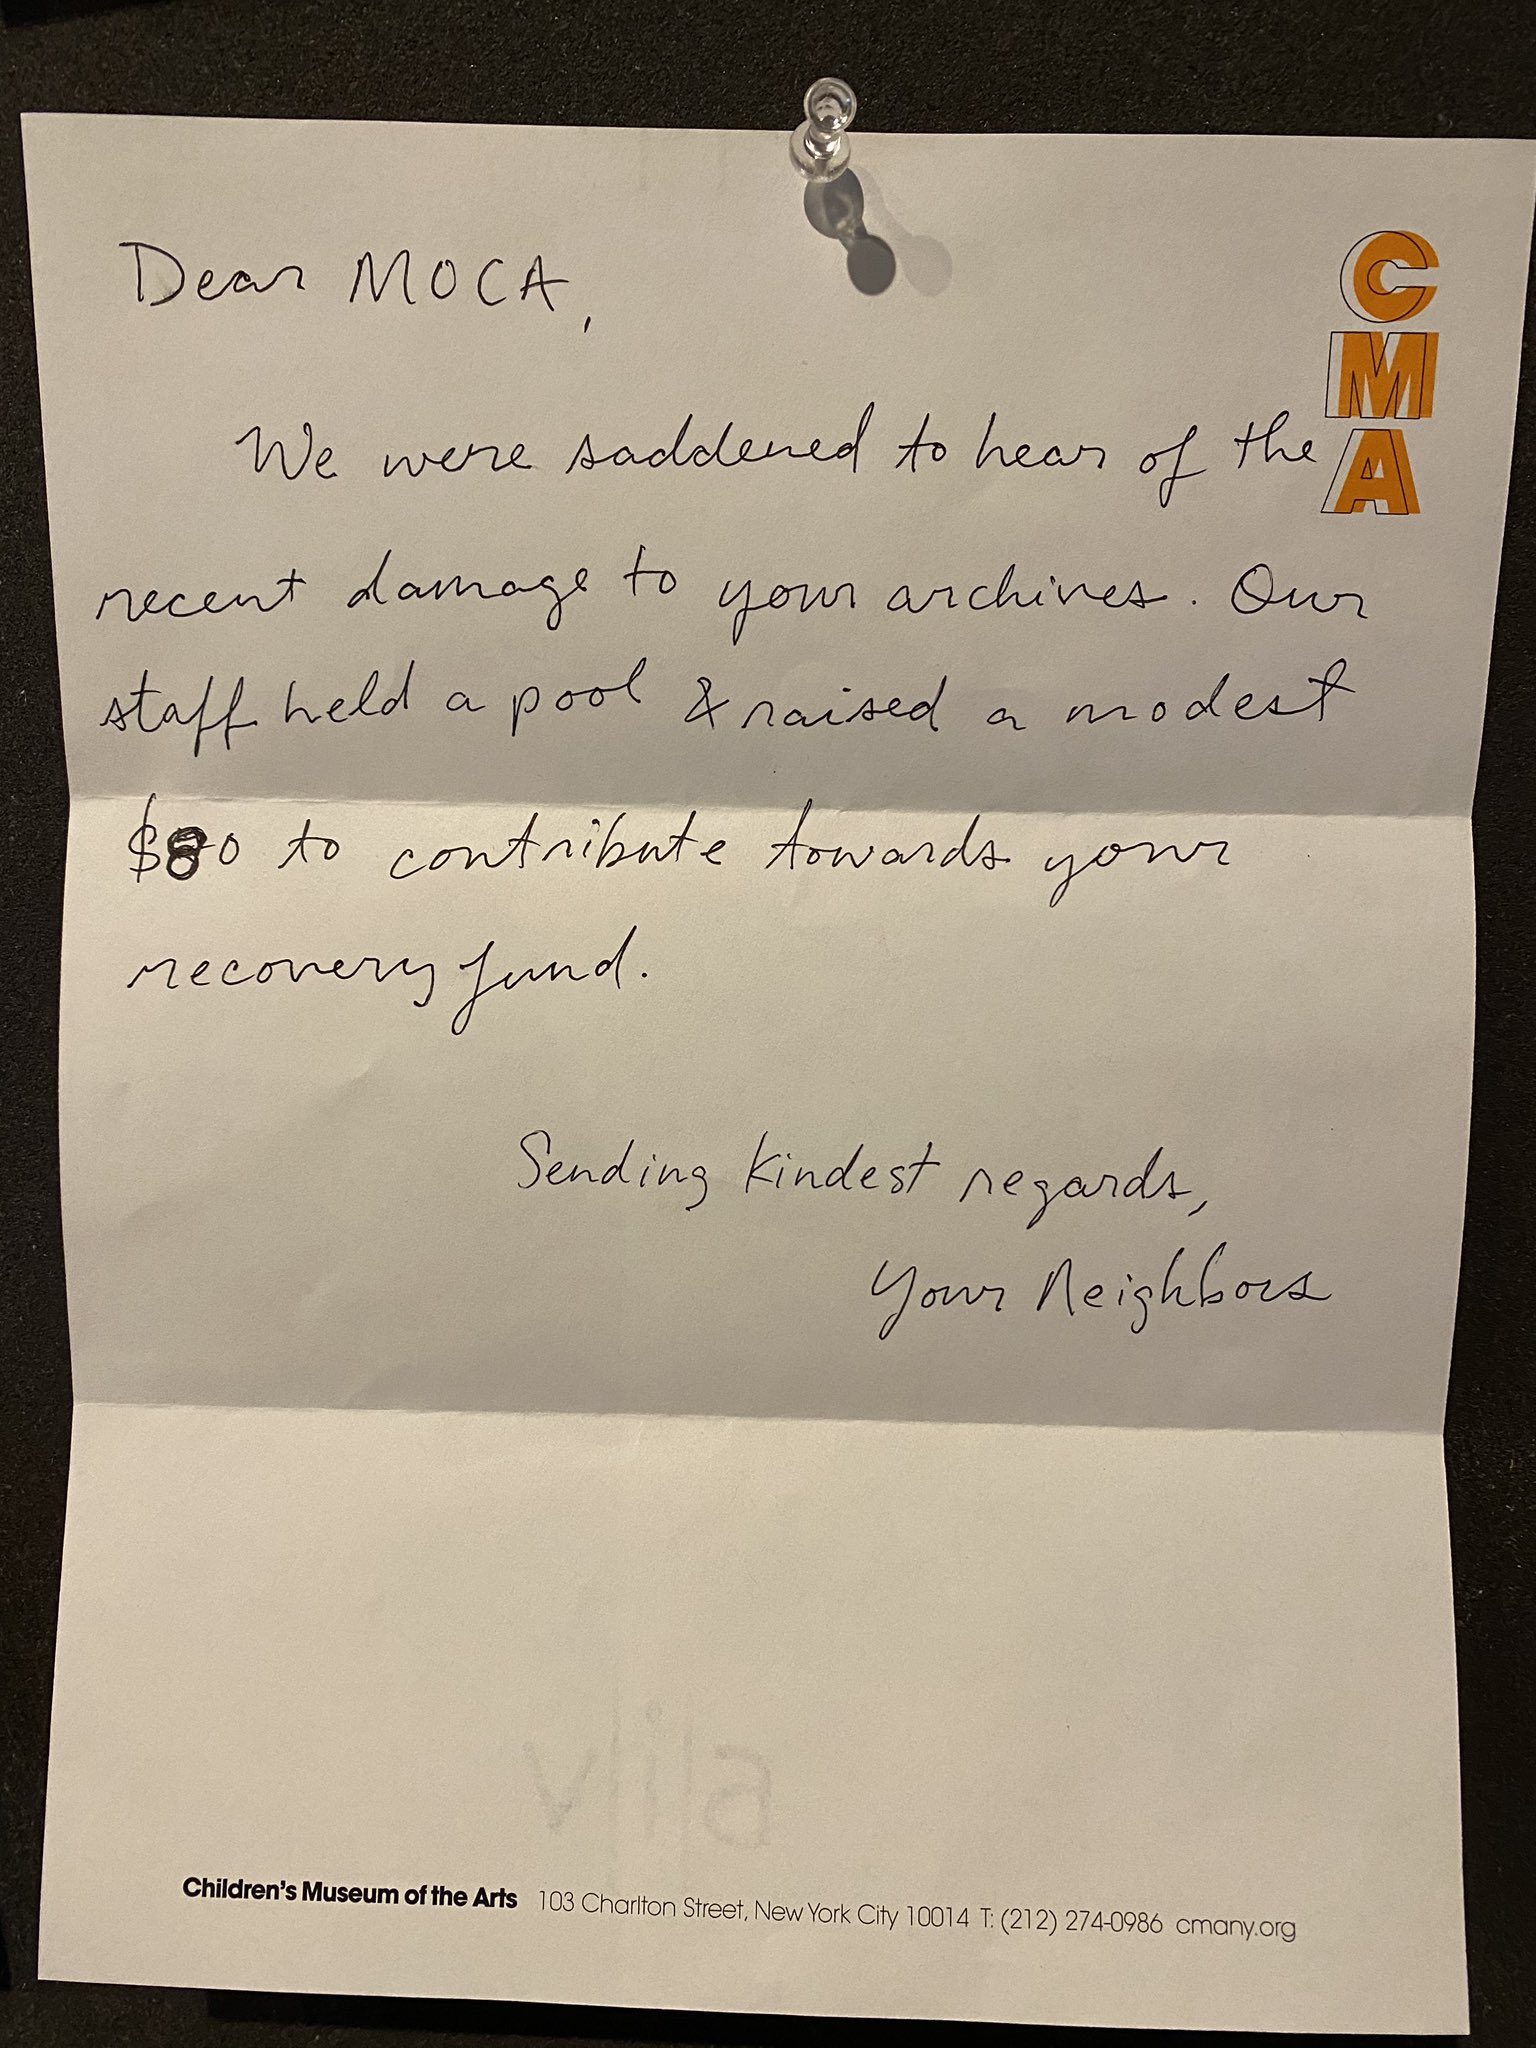 Dear MOCA,
C
M
A
We were saddened to hear of the
recent damage to your archives. Our
staff held a pool & raised a modest
$80 to contribute towards your
recovery fund.
Sending kindest regards,
Your Neighbors
Children's Museum of the Arts 103 Charlton Street, New York City 10014 T: (212) 274-0986 cmany.org